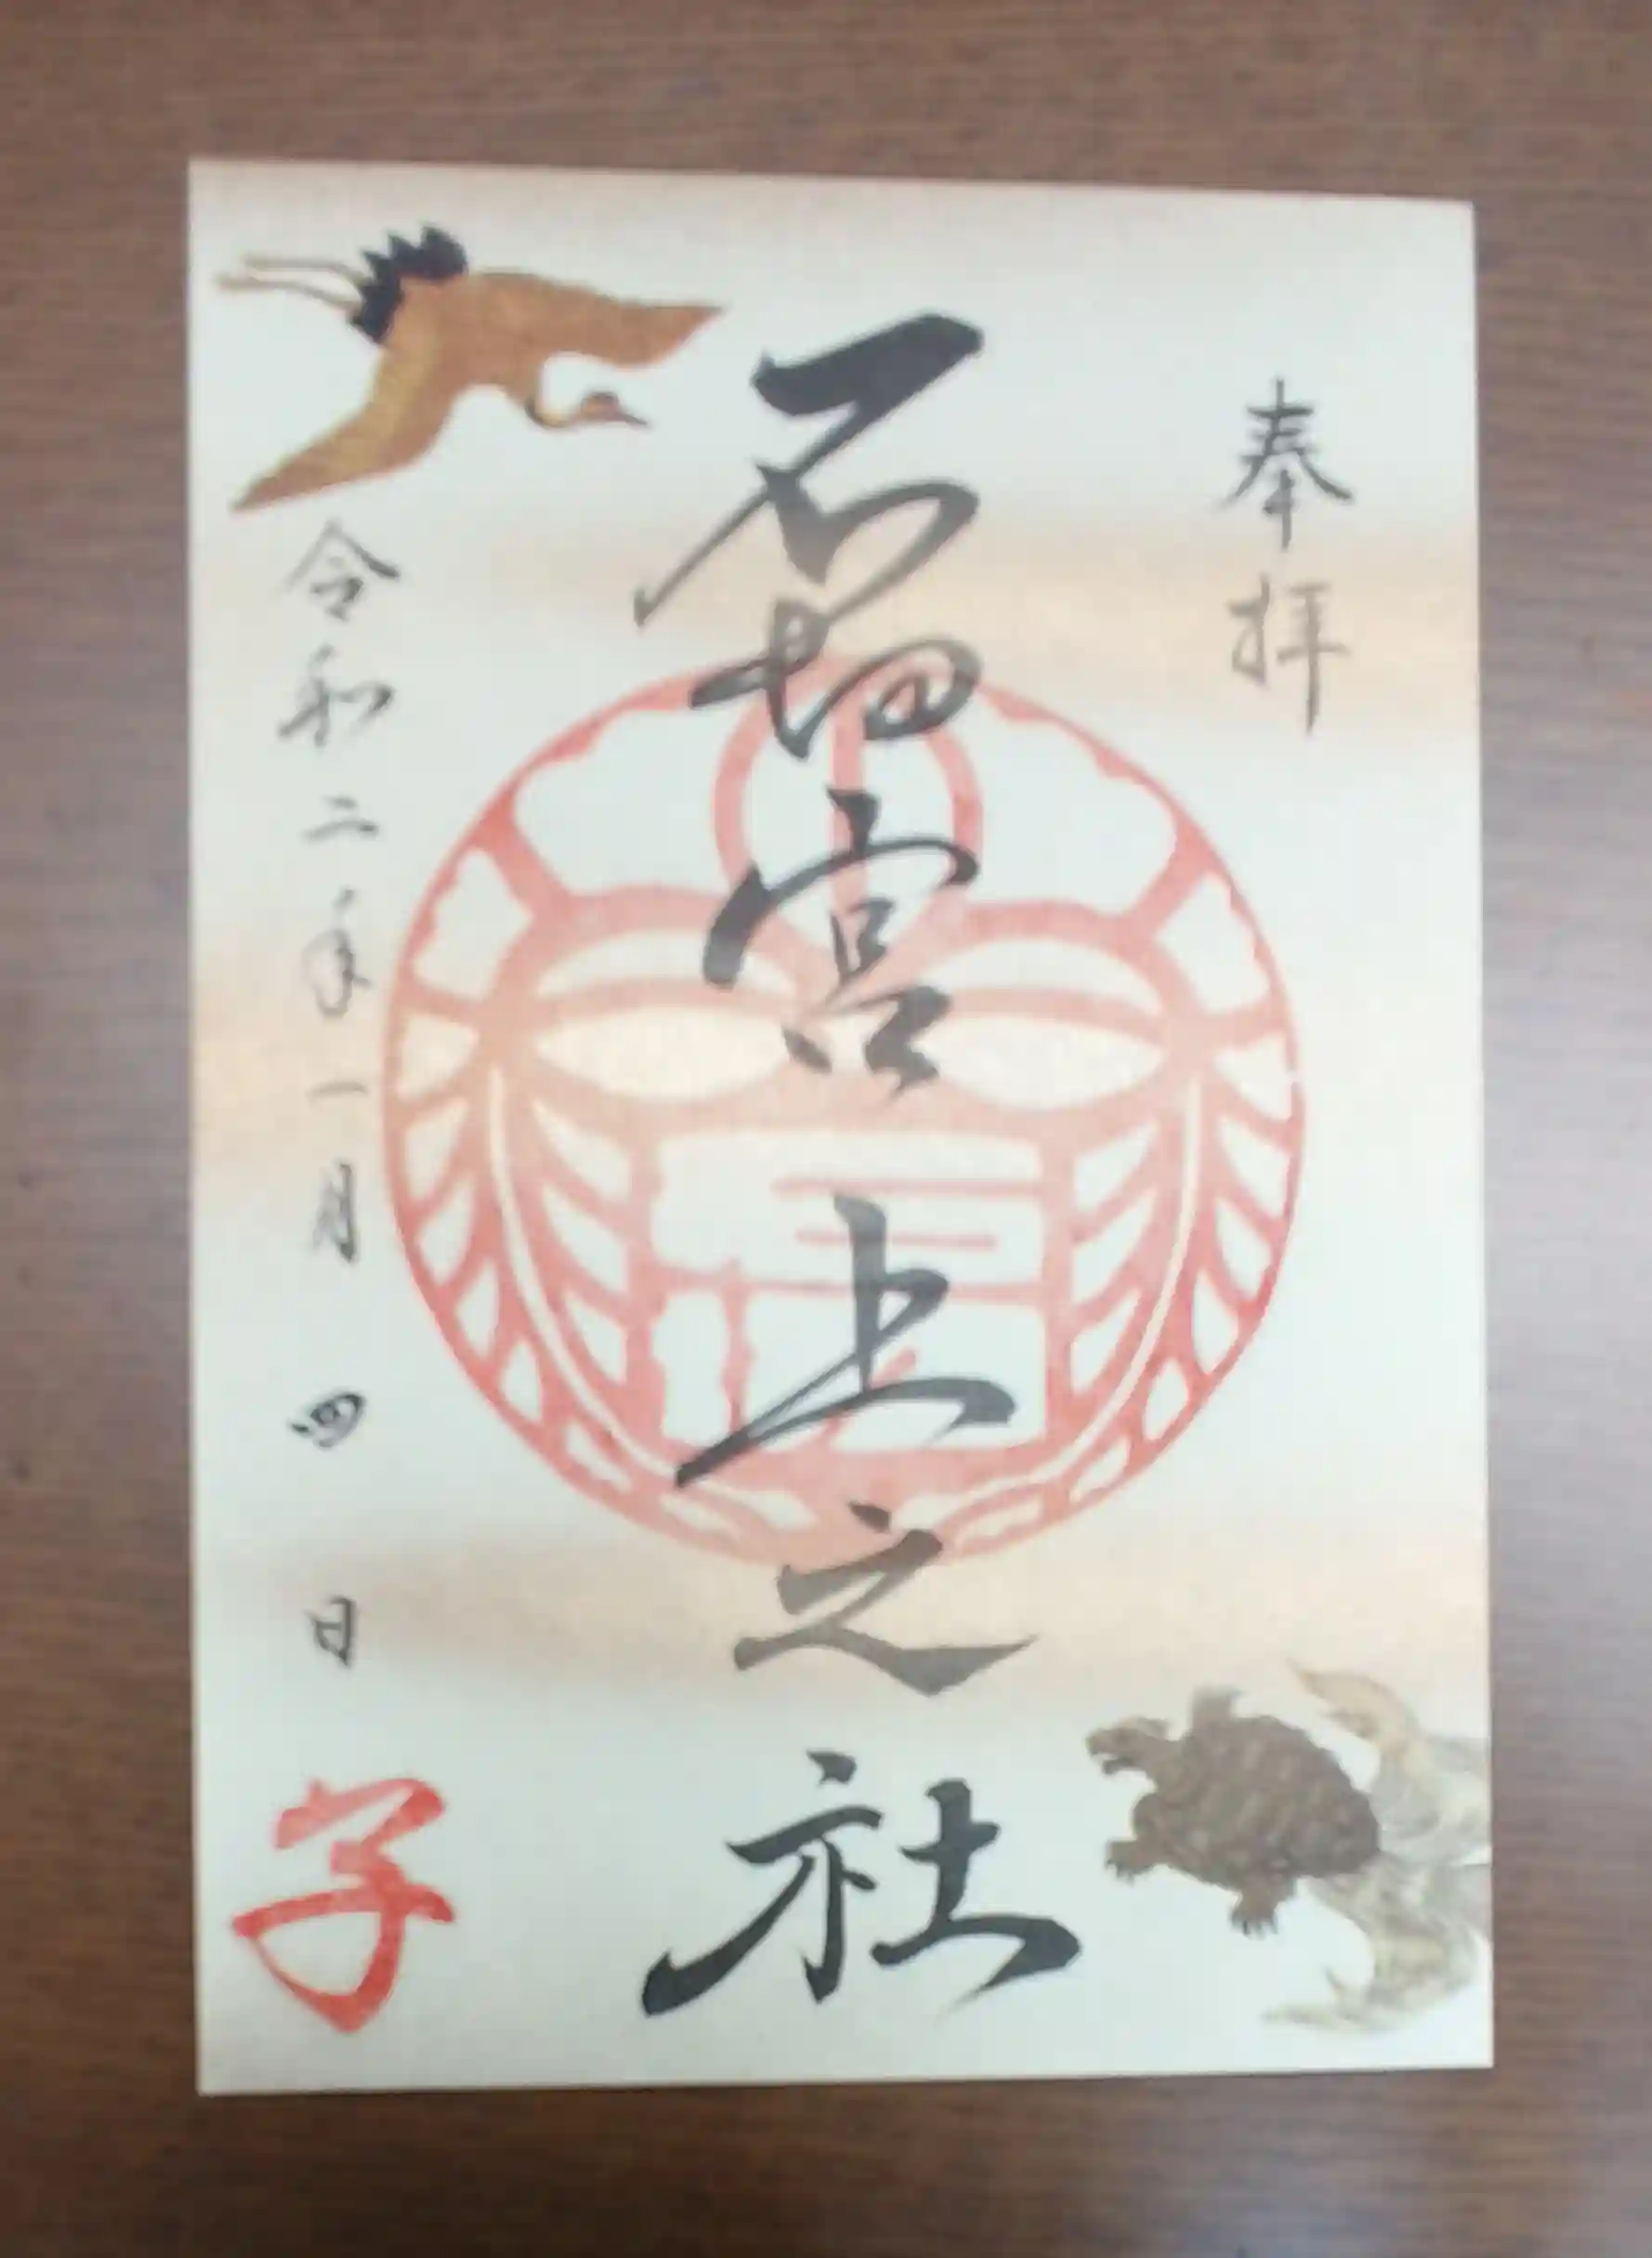 奉拝
石切宮上之社
令和二年一月四日
子